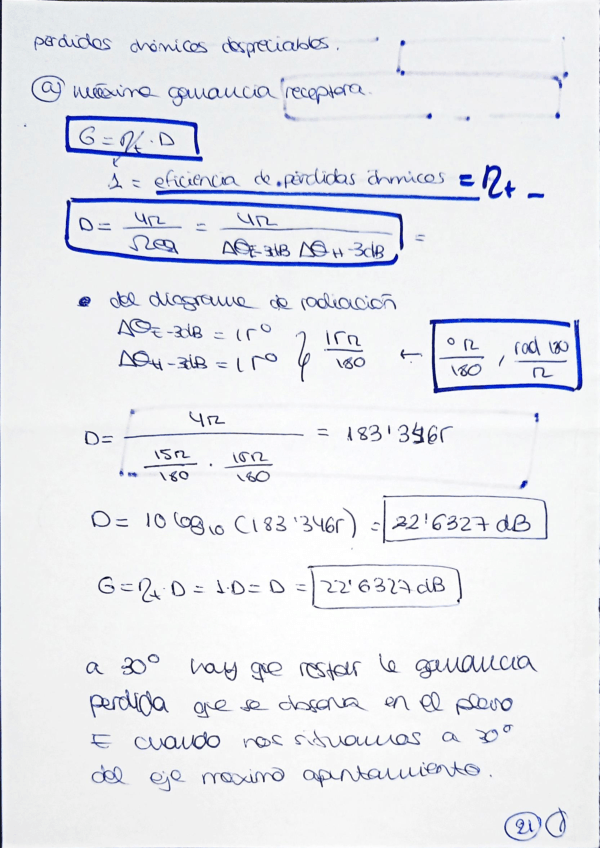 perdidas óhmicas despreciables.
ⓐ máxima ganancia receptora.
G = η_t · D
1 = eficiencia de pérdidas óhmicas = η_t
D = 4π / Ωeq = 4π / (Δθ_E-3dB Δθ_H-3dB) =
• del diagrama de radiación
Δθ_E-3dB = 15º } 15π / 180 ← º π / 180 , rad 180 / π
Δθ_H-3dB = 15º
D = 4π / (15π/180 · 15π/180) = 183'3465
D = 10 log₁₀ (183'3465) = 22'6327 dB
G = η_t · D = 1 · D = D = 22'6327 dB
a 30º hay que restar la ganancia
perdida que se observa en el plano
E cuando nos situamos a 30º
del eje maximo apuntamiento.
21